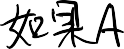 如果A